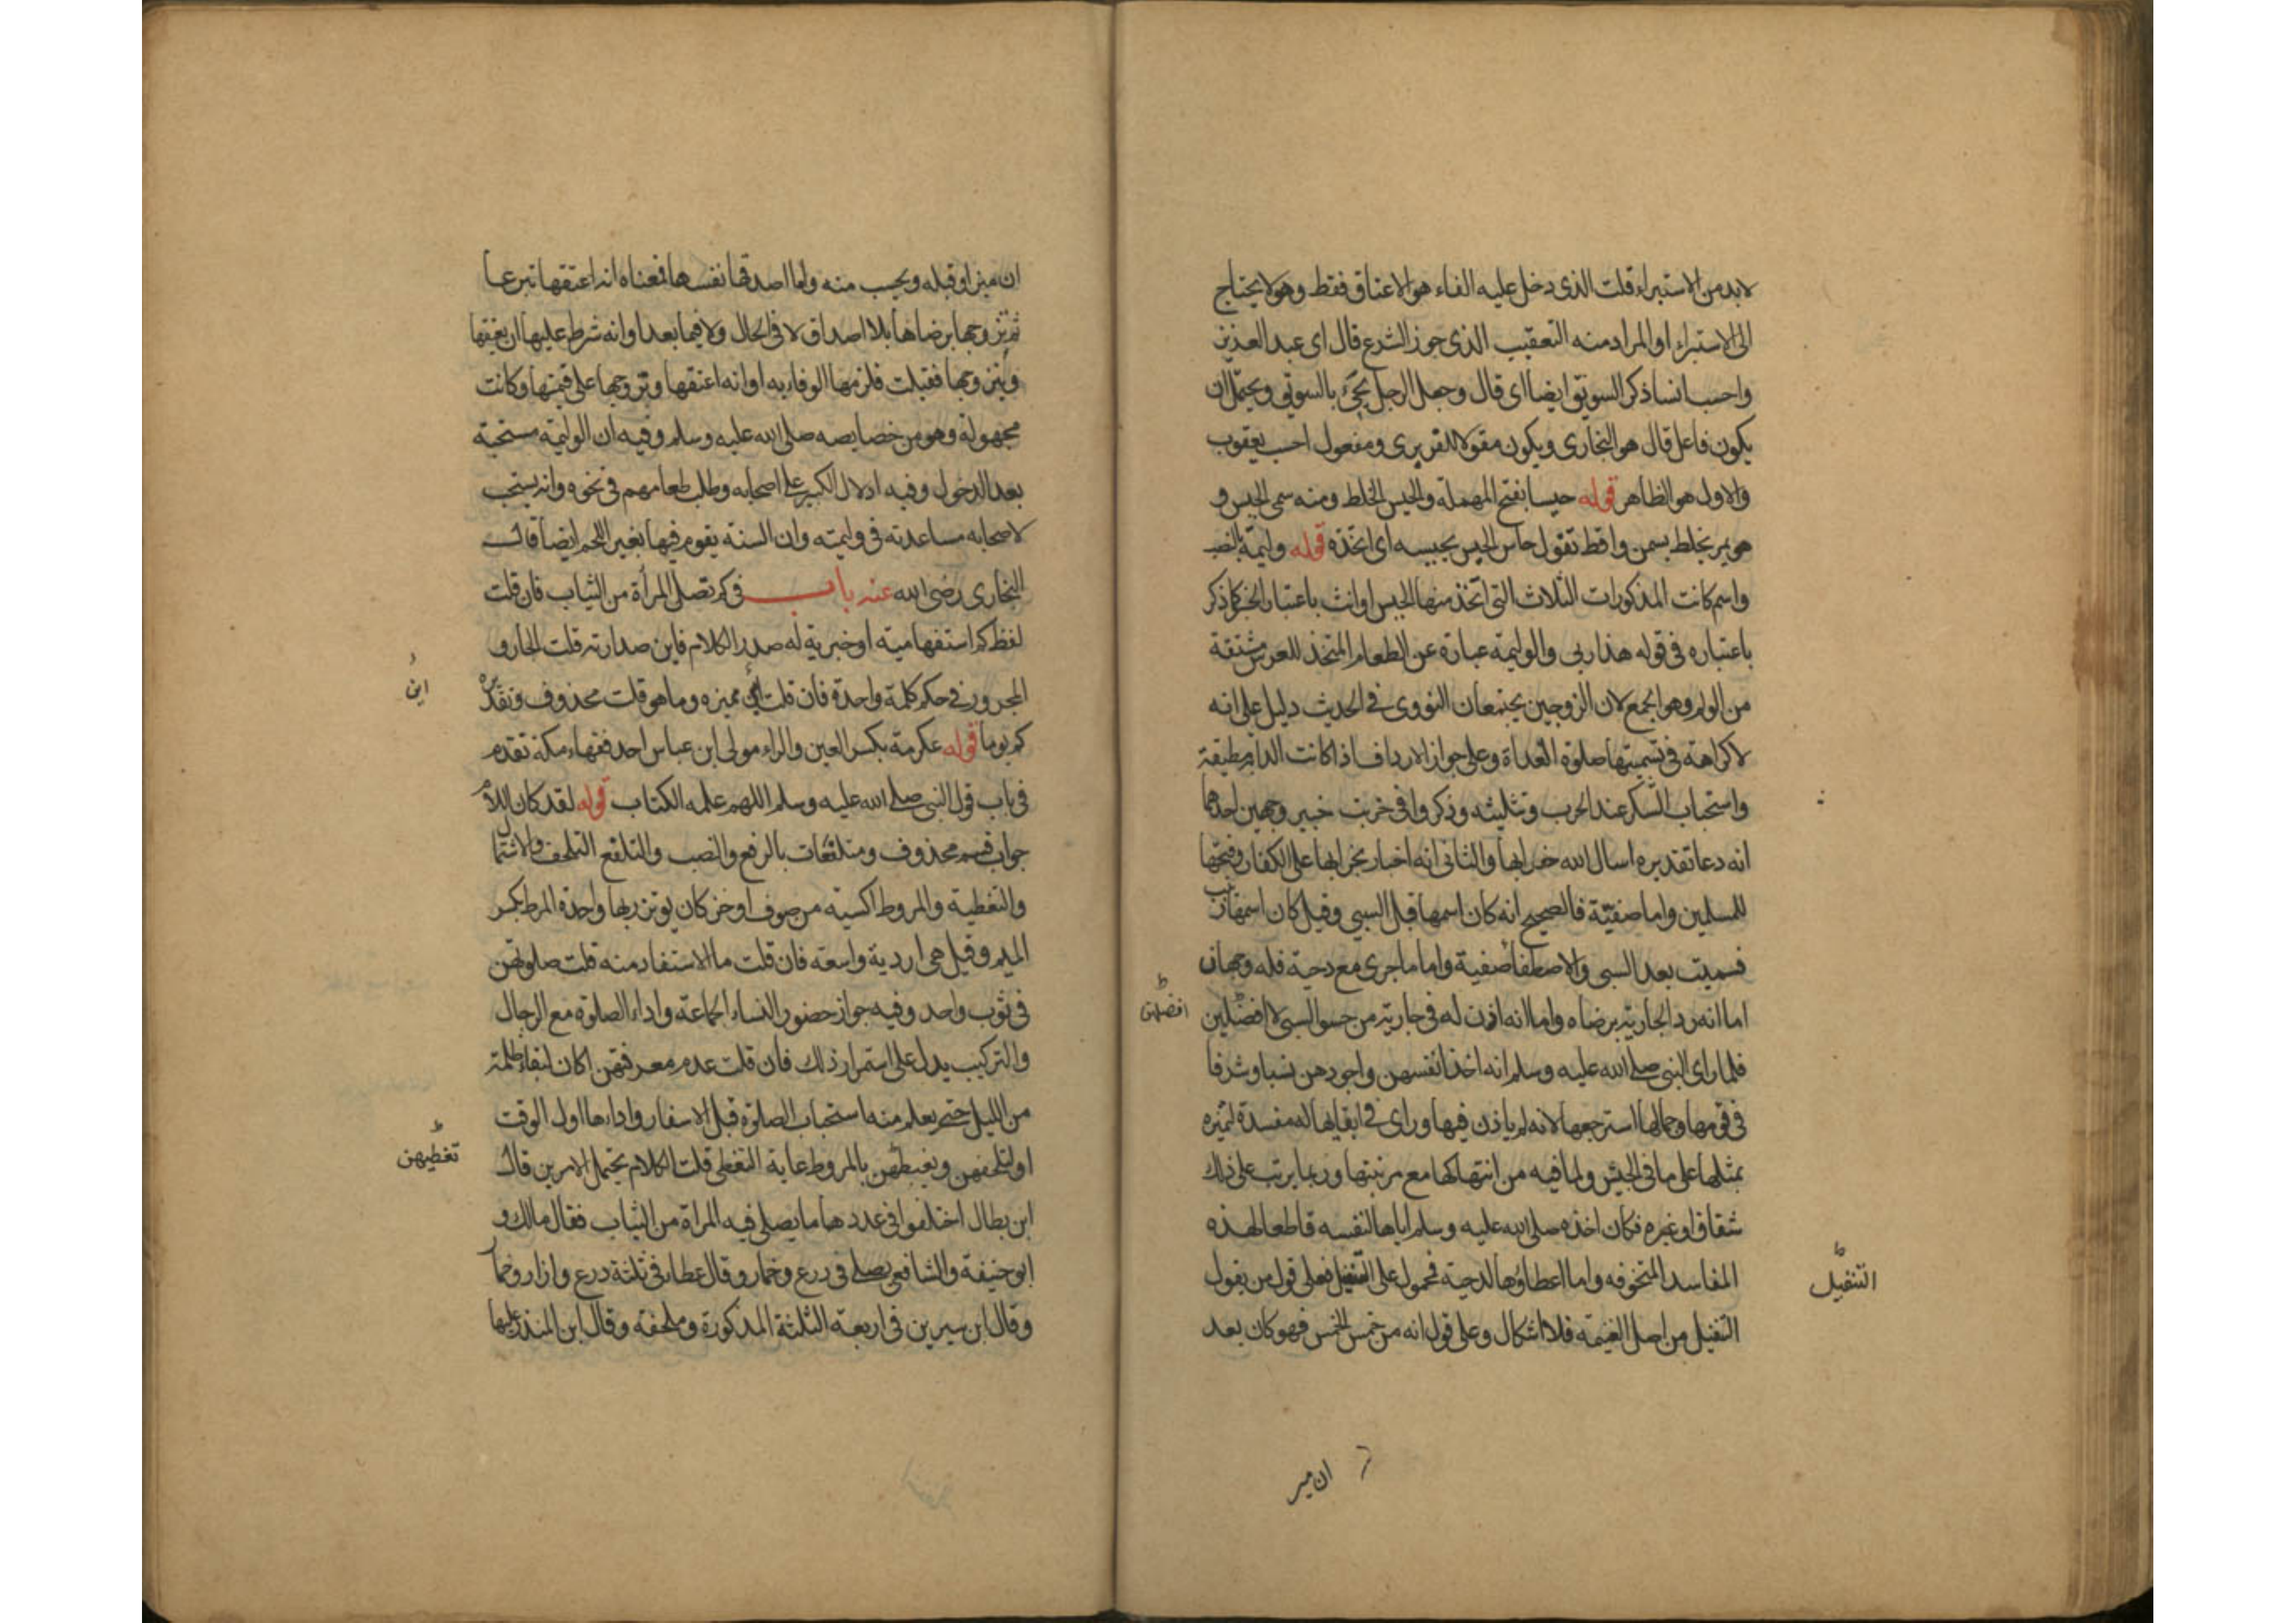 لابد من الاستبراء قلت الذى دخل عليه الفاء هو الاعتاق فقط وهو لا يحتاج
الى الاستبراء او المراد منه التعقيب الذى جوز الشرع قال اى عبد العزيز
واحسب انسا ذكر السويق ايضا اى قال وجعل الرجل يجئ بالسويق ويحتمل ان
يكون فاعل قال هو البخارى ويكون مقولا للفربرى ومفعول احسب يعقوب
والاول هو الظاهر قوله حيسا بفتح المهملة والحيس الخلط ومنه سمى الحيس و
هو تمر يخلط بسمن واقط تقول حاس الحيس يحيسه اى اتخذه قوله وليمة بالنصب
واسم كانت المذكورات الثلاث التى اتخذ منها الحيس او انث باعتبار الخبر كما ذكر
باعتباره فى قوله هذا ربى والوليمة عبارة عن الطعام المتخذ للعرس مشتقة
من الولم وهو الجمع لان الزوجين يجتمعان النووى فى الحديث دليل على انه
لا كراهة فى تسميتها صلوة الغداة وعلى جواز الارداف اذا كانت الدابة مطيقة
واستحباب التكبر عند الحرب وتثليثه وذكروا فى خربت خيبر وجهين احدهما
انه دعا تقديره اسال الله خرابها والثانى انه اخبار بخرابها على الكفار وفتحها
للمسلمين واما صفيّة فالصحيح انه كان اسمها قبل السبى وقيل كان اسمها زينب
فسميت بعد السبى والاصطفا صفية واما ما جرى مع دحية فله وجهان
اما انه رد الجارية برضاه واما انه اذن له فى جارية من حشو السبى لا افضلهن
افضلهن
فلما راى النبى صلى الله عليه وسلم انه اخذ انفسهن واجودهن نسبا وشرفا
فى قومها وجمالها استرجعها لانه لم ياذن فيها وراى فى ابقايها له مفسدة لتميزه
بمثلها على ما فى الجيش ولما فيه من انتهاكها مع مرتبتها وربما يرتب على ذلك
شقاق او غيره فكان اخذه صلى الله عليه وسلم اياها لنفسه قاطعا لهذه
المفاسد المتخوفه واما اعطاؤها لدحية فمحمول على التنفيل فعلى قول من يقول
التنفيل
التنفيل من اصل الغنيمة فلا اشكال وعلى قول انه من خمس الخمس فهو كان بعد
ان ميز
ان ميز او قبله ويحسب منه واما اصدقها نفسها فمعناه انه اعتقها تبرعا
ثم تزوجها برضاها بلا اصداق لا فى الحال ولا فيما بعد او انه شرط عليها ان يعتقها
ويتزوجها فقبلت فلزمها الوفاء به او انه اعتقها وتزوجها على قيمتها وكانت
مجهولة وهو من خصايصه صلى الله عليه وسلم وفيه ان الوليمة مستحبة
بعد الدخول وفيه ادلال الكبير على اصحابه وطلب طعامهم فى نحوه وانه يستحب
لاصحابه مساعدته فى وليمته وان السنة يقوم فيها بغير اللحم ايضا قال
البخارى رضى الله عنه باب فى كم تصلى المرأة من الثياب فان قلت
لفظ كم استفهامية او خبرية له صدر الكلام فاين صدارته قلت الجار و
المجرور فى حكم كلمة واحدة فان قلت اين مميزه وما هو قلت محذوف وتقديره
اين
كم ثوبا قوله عكرمة بكسر العين والراء مولى ابن عباس احد فقهاء مكة تقدم
فى باب قول النبى صلى الله عليه وسلم اللهم علمه الكتاب قوله لقد كان اللام
جواب قسم محذوف ومتلفعات بالرفع والنصب والتلفع التلحف والاشتمال
والتغطية والمروط اكسية من صوف او خز كان يوتزر بها واحدة المرط بكسر
الميم وقيل هى اردية واسعة فان قلت ما الاستفاد منه قلت صلوتهن
فى ثوب واحد وفيه جواز حضور النساء الجماعة واداء الصلوة مع الرجال
والتركيب يدل على استمرار ذلك فان قلت عدم معرفتهن اكان لبقاء ظلمة
من الليل حتى يعلم منه استحباب الصلوة قبل الاسفار واداءها اول الوقت
او لتلحفهن وتغطيهن بالمروط غاية التغطى قلت الكلام يحتمل الامرين قال
تغطيهن
ابن بطال اختلفوا فى عدد ها ما يصلى فيه المراة من الثياب فقال مالك و
ابو حنيفة والشافعى يصلى فى درع وخمار وقال عطاء فى ثلثة درع وازار وخمار
وقال ابن سيرين فى اربعة الثلثة المذكورة وملحفة وقال ابن المنذر عليها